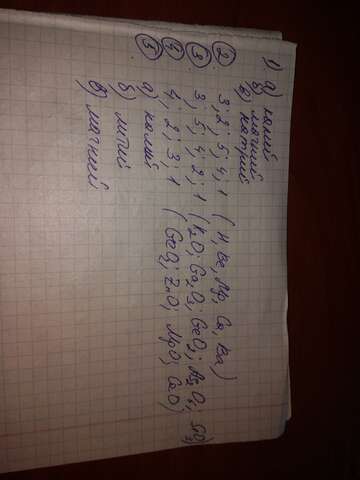 1) а) калий
б) магний
в) натрий
② 3; 2; 5; 4; 1 (H, Be, Mg, Ca, Ba)
③ 3; 5; 4; 2; 1 (K₂O; Ga₂O₃; GeO₂; As₂O₅; SeO₃)
④ 4; 2; 3; 1 (GeO₂; ZnO; MgO; CaO)
⑤ а) калий
б) литий
в) магний